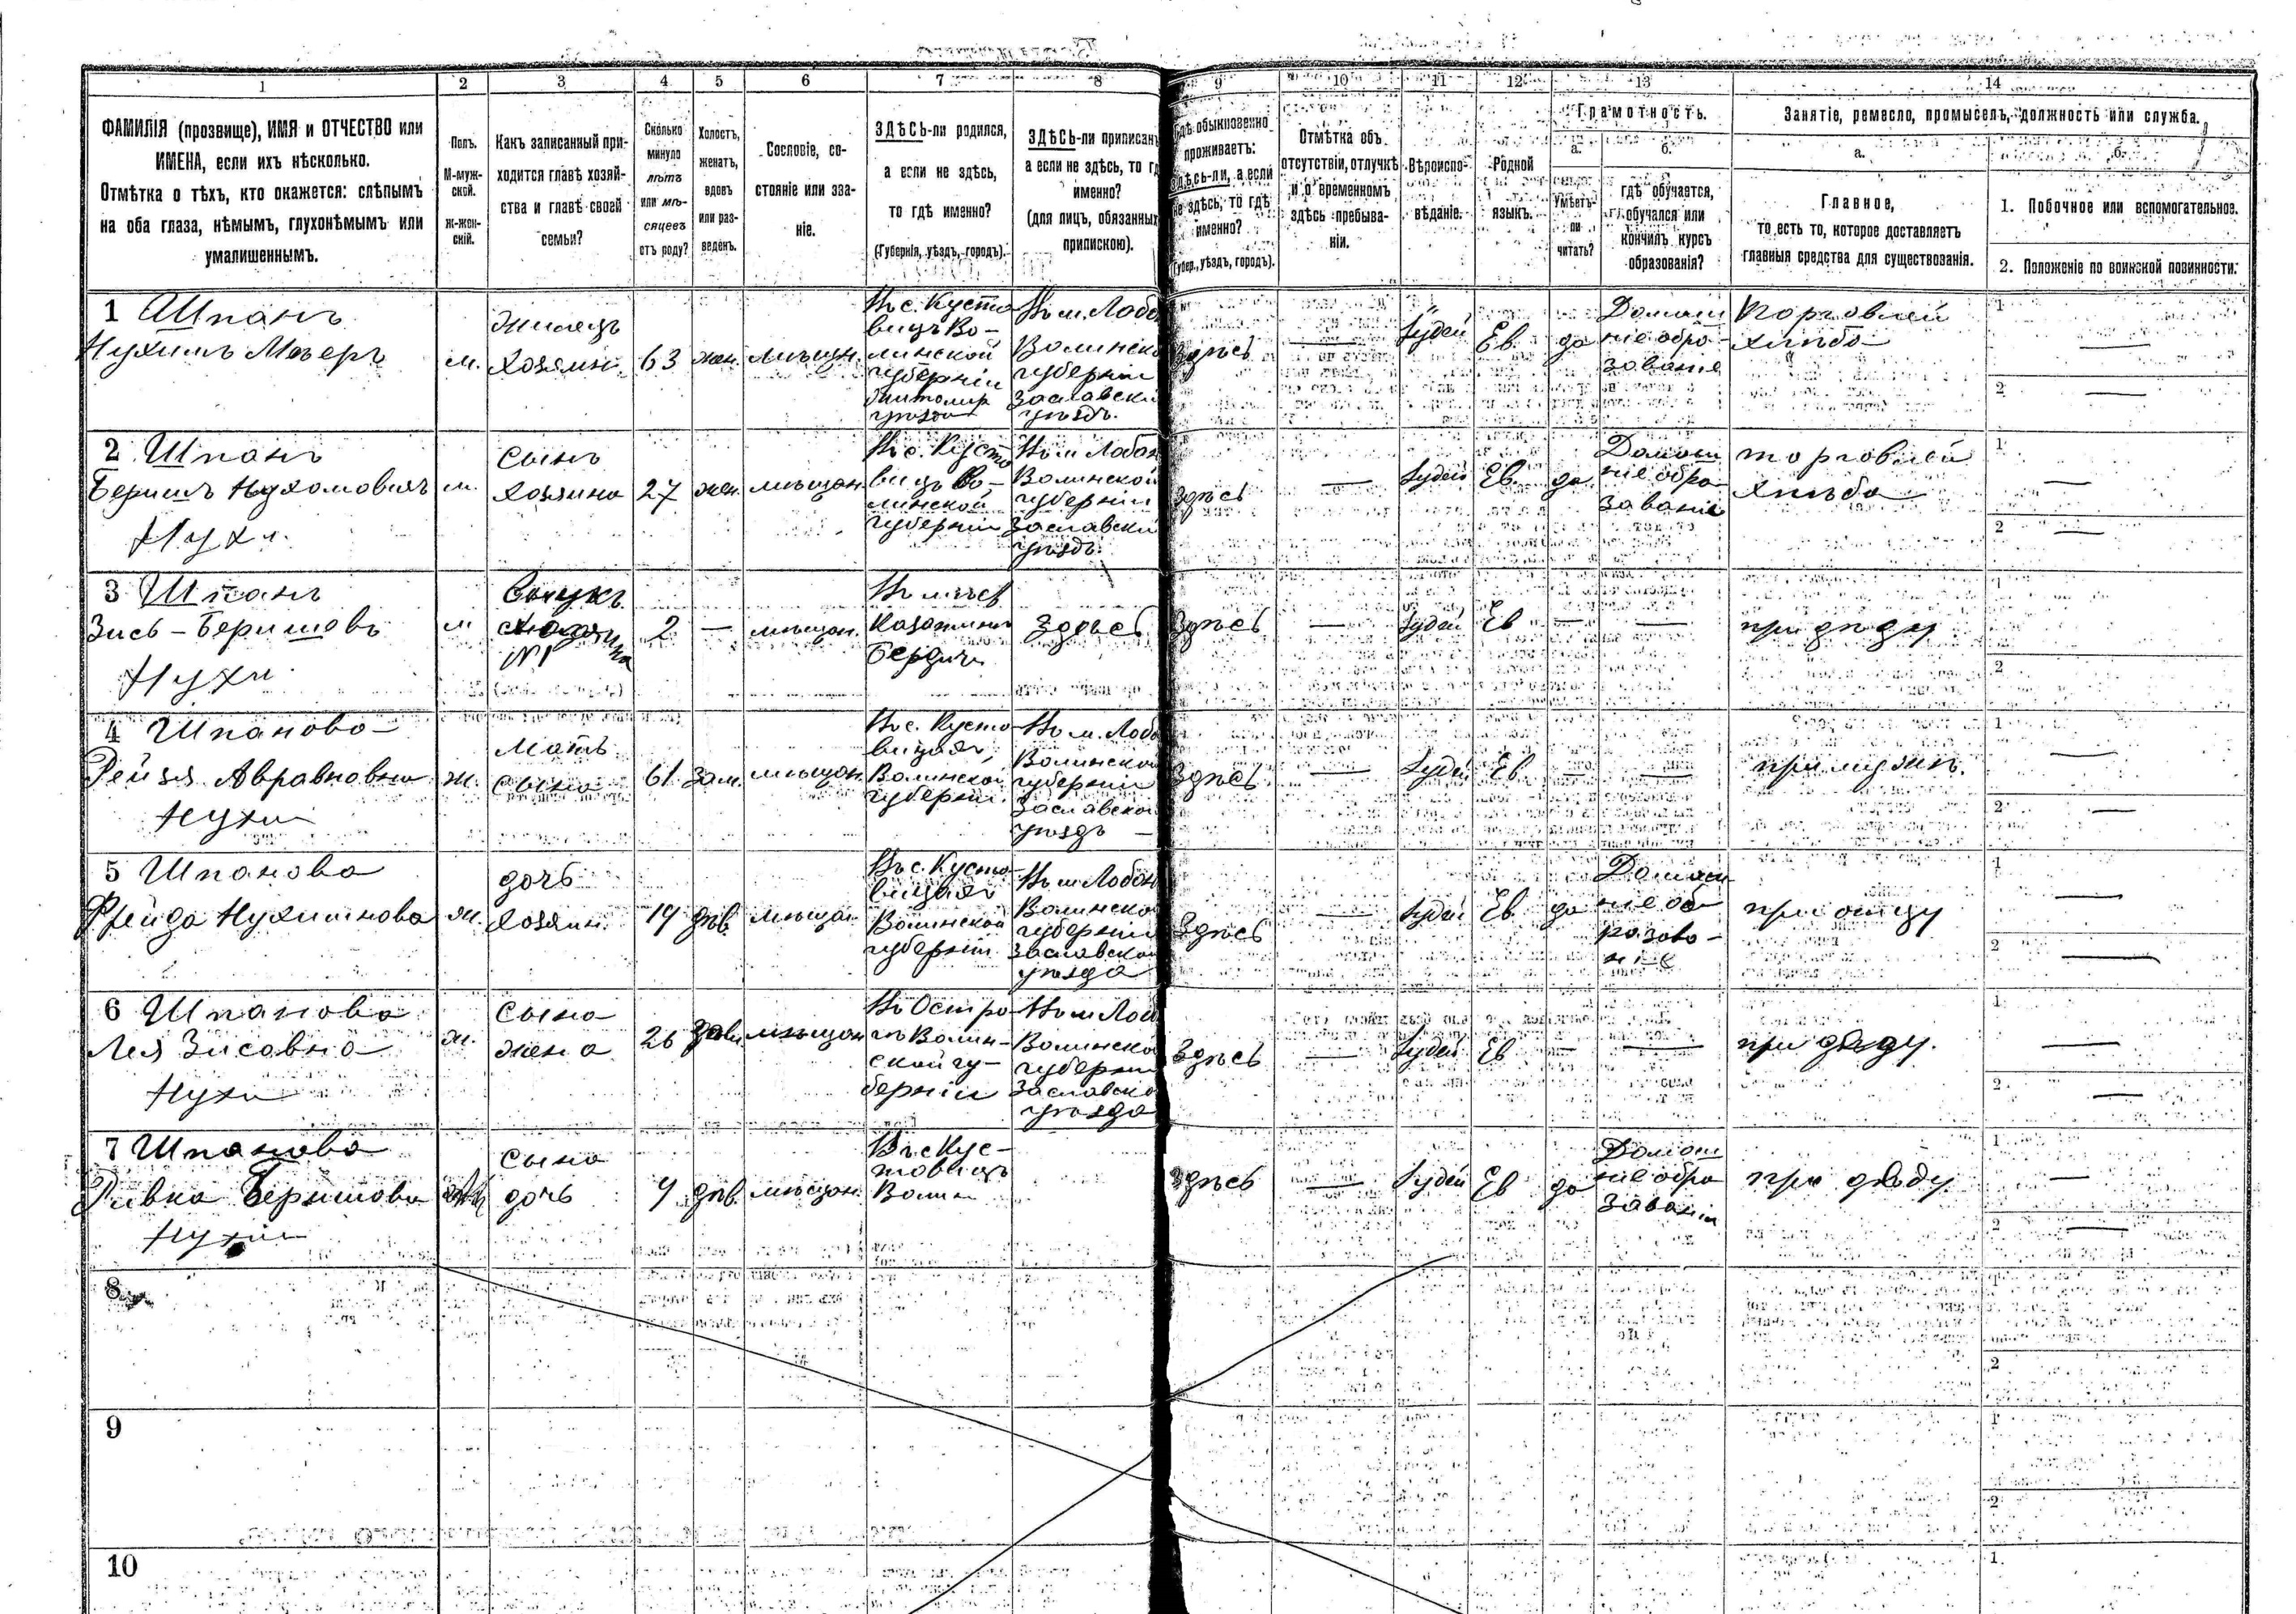 1 2 3 4 5 6 7 8 9 10 11 12 13 14
ФАМИЛІЯ (прозвище), ИМЯ и ОТЧЕСТВО или
ИМЕНА, если ихъ нѣсколько.
Отмѣтка о тѣхъ, кто окажется: слѣпымъ
на оба глаза, нѣмымъ, глухонѣмымъ или
умалишеннымъ.
Полъ.
М-муж-
ской.
Ж-жен-
скій.
Какъ записанный при-
ходится главѣ хозяй-
ства и главѣ своей
семьи?
Сколько
минуло
лѣтъ
или мѣ-
сяцевъ
отъ роду?
Холостъ,
женатъ,
вдовъ
или раз-
веденъ.
Сословіе, со-
стояніе или зва-
ніе.
ЗДѢСЬ-ли родился,
а если не здѣсь,
то гдѣ именно?
(Губернія, уѣздъ, городъ).
ЗДѢСЬ-ли приписанъ
а если не здѣсь, то гд
именно?
(для лицъ, обязанных
припискою).
Гдѣ обыкновенно
проживаетъ:
здѣсь-ли, а если
не здѣсь, то гдѣ
именно?
(Губер., уѣздъ, городъ).
Отмѣтка объ
отсутствіи, отлучкѣ
и о временномъ
здѣсь пребыва-
ніи.
Вѣроиспо-
вѣданіе.
Родной
языкъ.
Грамотность.
а.
Умѣетъ-
ли
читать?
б.
гдѣ обучается,
обучался или
кончилъ курсъ
образованія?
Занятіе, ремесло, промыселъ, должность или служба.
а.
Главное,
то есть то, которое доставляетъ
главныя средства для существованія.
б.
1. Побочное или вспомогательное.
2. Положеніе по воинской повинности.
1 Шпанъ
Нухимъ Мееръ
м.
жилецъ
хозяин.
63
жен.
мѣщан.
Въ с. Кусто-
вицъ Во-
линской
губерніи
Въ м. Лаб
Волинско
губерніи
Заславски
уѣздъ.
Здѣсь
—
Іудей
Ев.
да
Домаш
ніе обра-
зованіе
Торговлей
хлѣба
1 —
2 —
2 Шпанъ
Беришъ Нухомовичъ
Нухи.
м.
сынъ
хозяина
27
жен.
мѣщан.
Въ с. Кусто
вицъ Во-
линской
губерніи
Волинской
губерніи
Заславски
уѣздъ.
Здѣсь
—
Іудей
Ев.
да
Домаш
ніе обра
зованіе
торговлей
хлѣба
1 —
2 —
3 Шпанъ
Зись-Беришевъ
Нухи
м
Внукъ
хозяина
№1
2
—
мѣщан.
Казатинъ
Бердич
Здѣсь
Здѣсь
—
Іудей
Ев
—
—
при дѣду
1
2
4 Шпанова
Рейзя Авравновна
Нухи
ж.
Мать
сына
61
Зам.
мѣщан.
Въ с. Кусто-
вицахъ
Волинской
губерніи.
Волинской
губерніи
Заславской
уѣздъ
Здѣсь
—
Іудей
Ев
—
—
при мужи.
1 —
2 —
5 Шпанова
Фрейда Нухимнова
ж.
дочь
хозяин.
19
дѣв.
мѣщан
Въ с. Кусто-
вицахъ
Волинской
губерніи
Волинско
губерніи
Заславской
уѣзда
Здѣсь
—
Іудей
Ев
да
Домаш
ніе об
разова-
ніе
при отцу
1 —
2 —
6 Шпанова
Лея Зисовна
Нухи
ж.
Сына
жена
26
Зам
мѣщан
Въ Остро-
гѣ Волин-
ской гу-
берніи
Волинско
губерніи
Заславско
уѣзда
Здѣсь
—
Іудей
Ев
—
—
при дѣду.
1 —
2 —
7 Шпанова
Ривка Беришова
Нухи
Сына
дочь
7
дѣв.
мѣщан.
Въ с Кус-
товицъ
Волин
Здѣсь
—
Іудей
Ев
да
Домаш
ніе обра
зованіи
при дѣду
1 —
2 —
8
2
9
1
2
10
1.